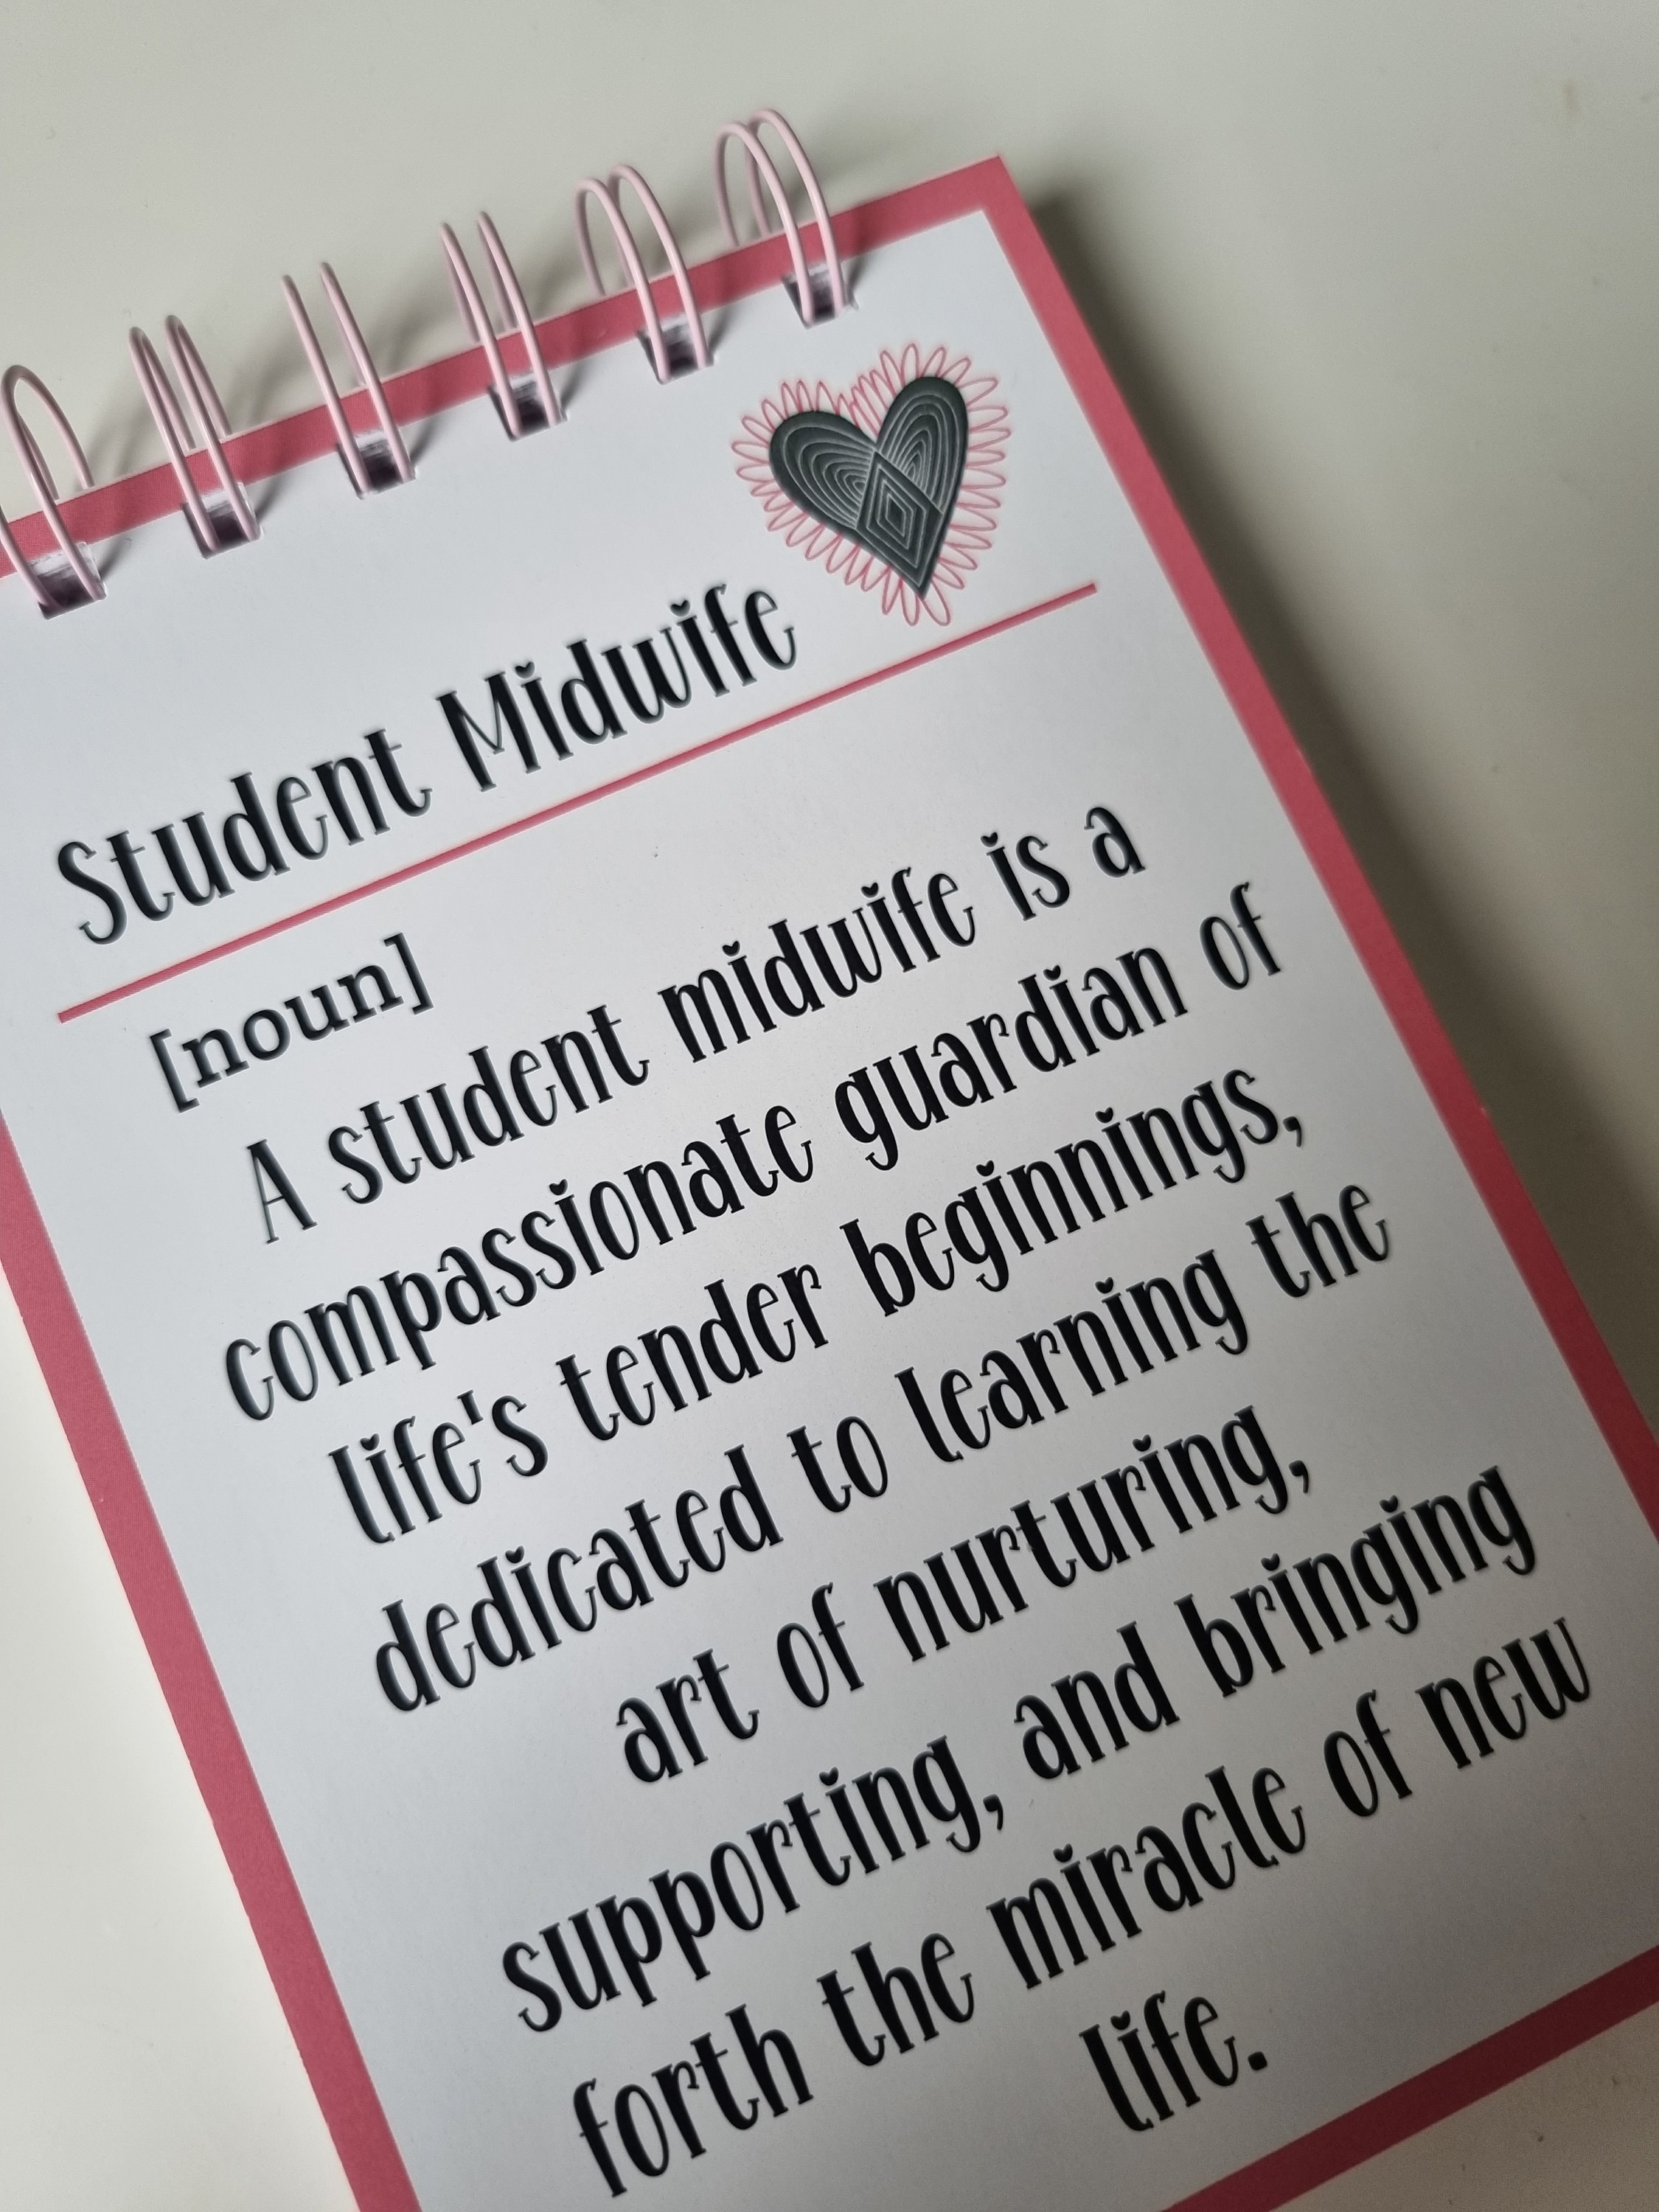 Student Midwife
[noun]
A student midwife is a
compassionate guardian of
life's tender beginnings,
dedicated to learning the
art of nurturing,
supporting, and bringing
forth the miracle of new
life.